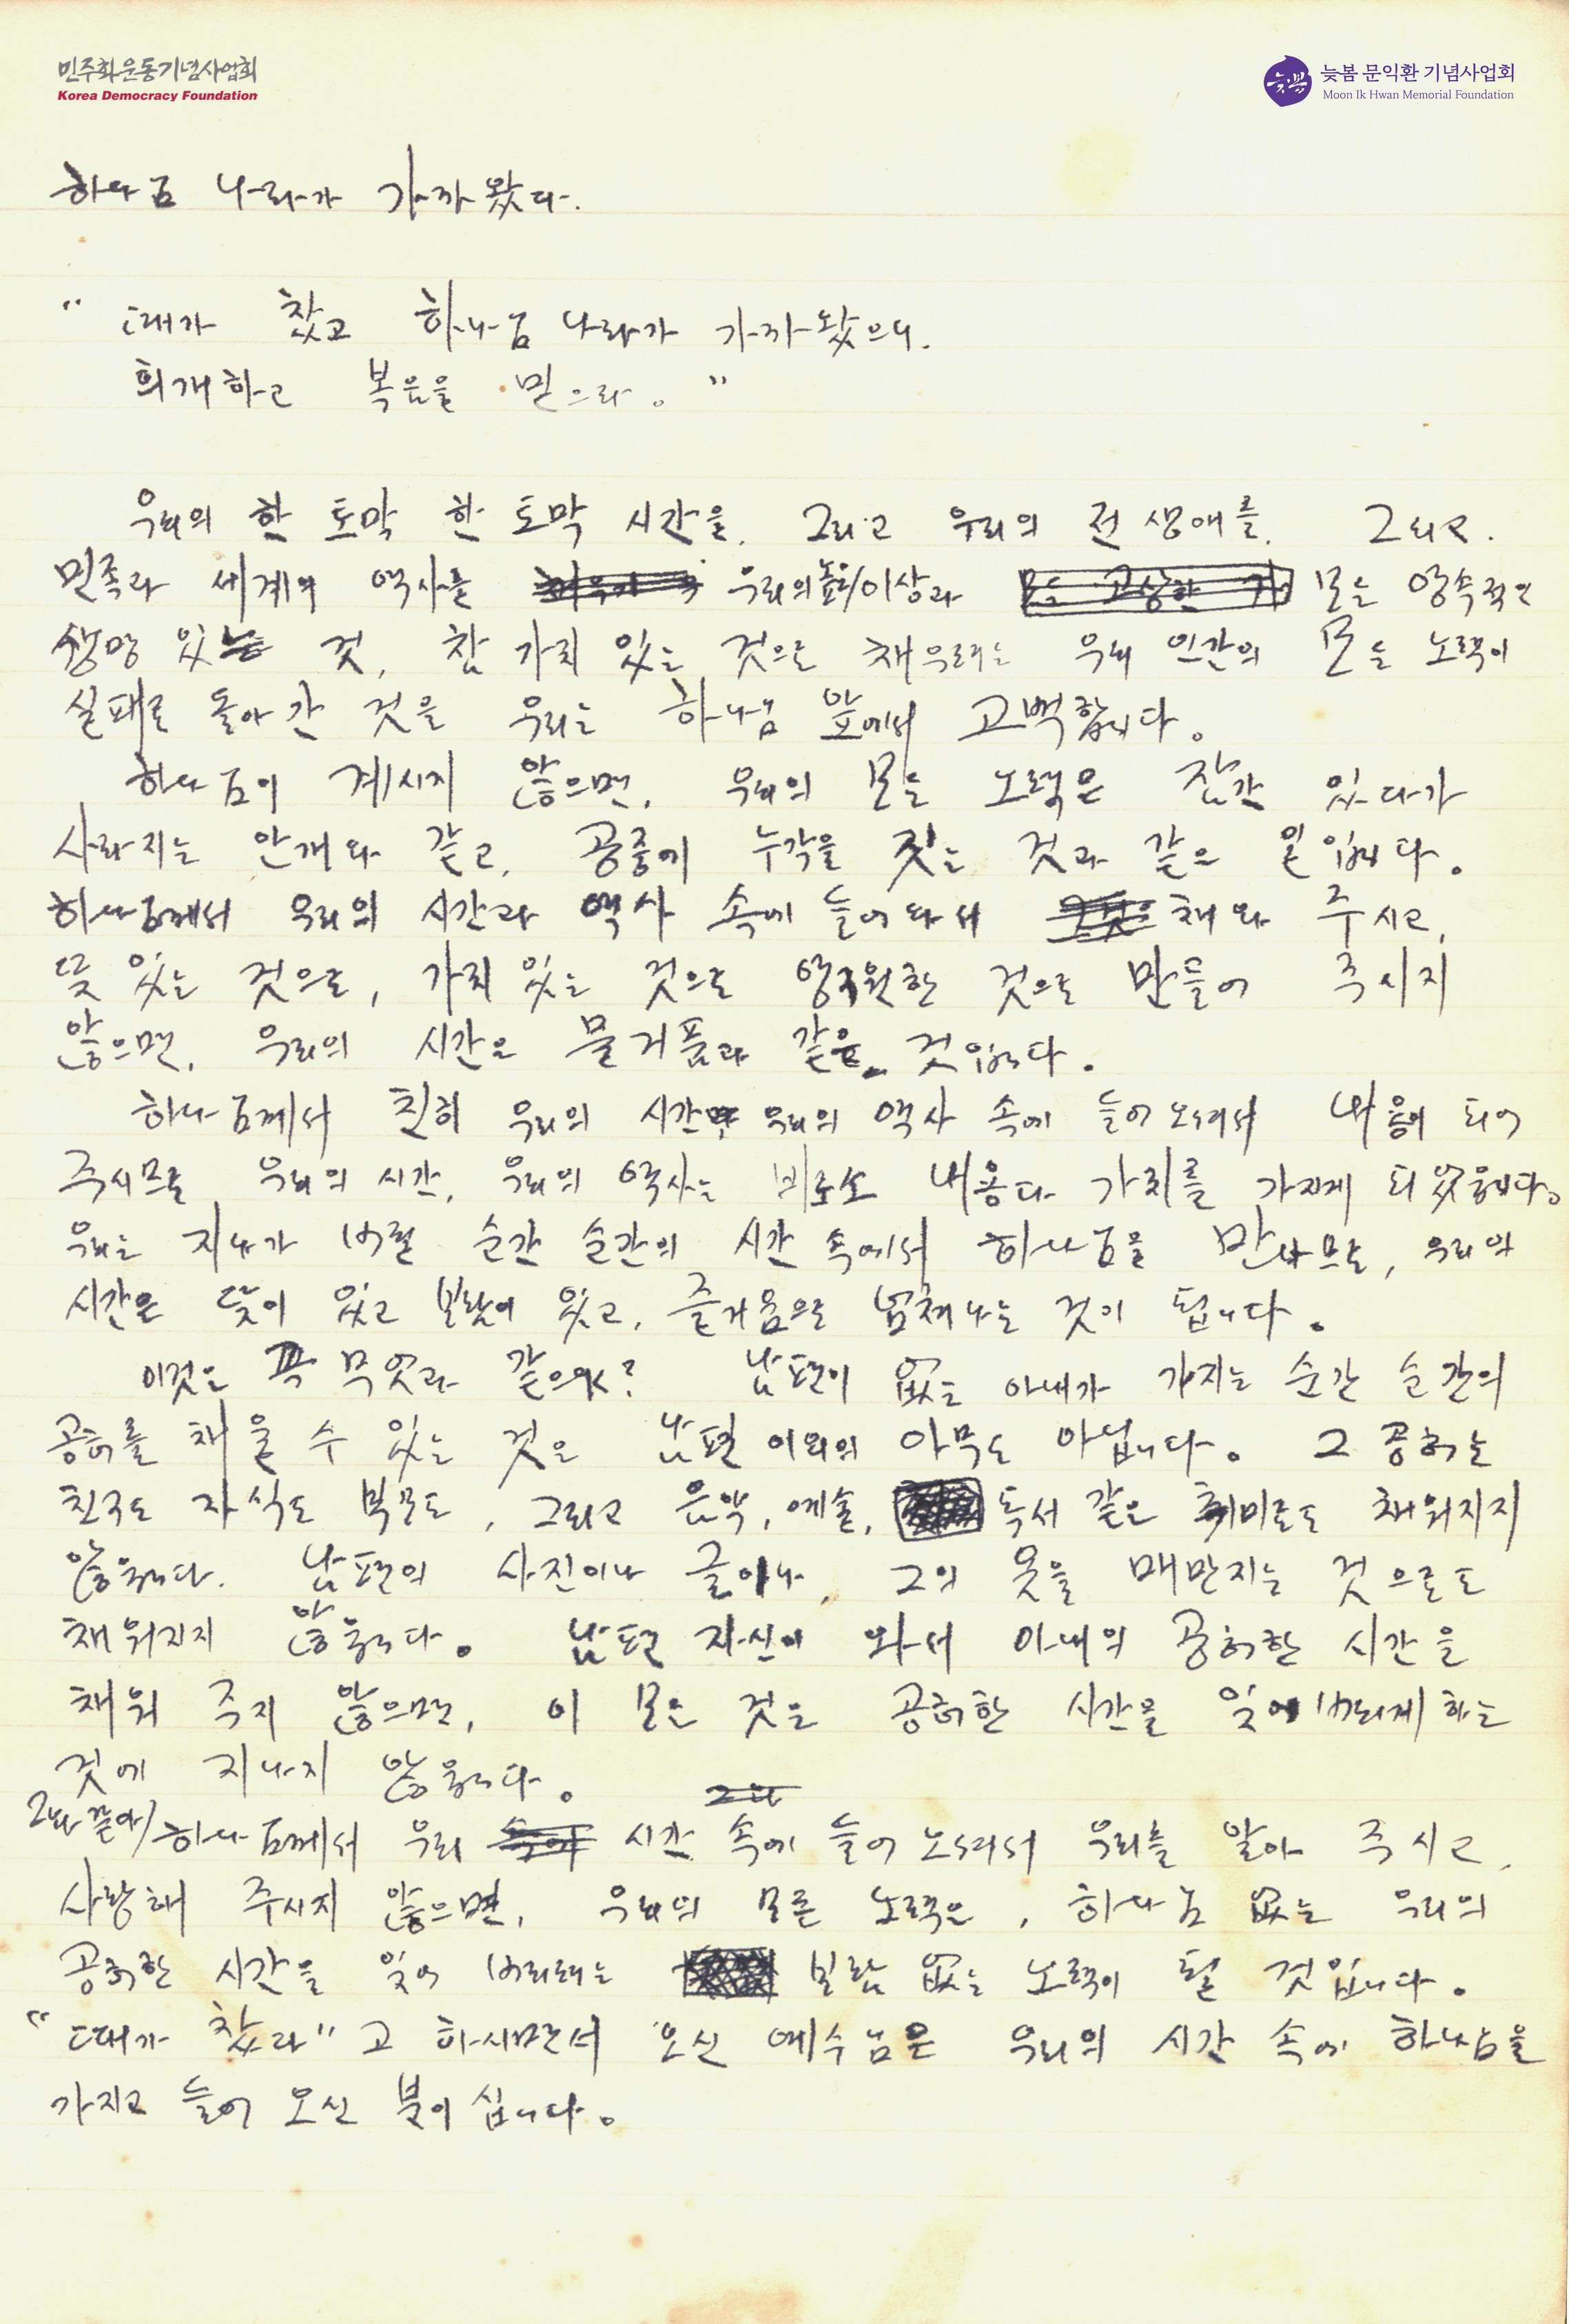 민주화운동기념사업회
Korea Democracy Foundation
늦봄 문익환 기념사업회
Moon Ik Hwan Memorial Foundation
하나님 나라가 가까왔다.
"때가 찼고 하나님 나라가 가까왔으니.
회개하고 복음을 믿으라。"
우리의 한 토막 한 토막 시간을, 그리고 우리의 전 생애를, 그리고.
민족과 세계의 역사를 우리의 높은 이상과 모든 영속적인
생명 있는 것, 참 가치 있는 것으로 채우려는 우리 인간의 모든 노력이
실패로 돌아 간 것을 우리는 하나님 앞에서 고백합니다。
하나님이 계시지 않으면, 우리의 모든 노력은 잠간 있다가
사라지는 안개와 같고, 공중에 누각을 짓는 것과 같은 일입니다。
하나님께서 우리의 시간과 역사 속에 들어와서 채와 주시고,
뜻 있는 것으로, 가치 있는 것으로 영원한 것으로 만들어 주시지
않으면, 우리의 시간은 물거품과 같은 것입니다.
하나님께서 친히 우리의 시간과 우리의 역사 속에 들어오셔서 내용이 되어
주시므로 우리의 시간, 우리의 역사는 비로소 내용과 가치를 가지게 되었읍니다。
우리는 지나가 버릴 순간 순간의 시간 속에서 하나님을 만나므로, 우리의
시간은 뜻이 있고 보람이 있고, 즐거움으로 넘쳐나는 것이 됩니다。
이것은 꼭 무엇과 같은가? 남편이 없는 아내가 가지는 순간 순간의
공허를 채울 수 있는 것은 남편 이외의 아무도 아닙니다。 그 공허는
친구도 자식도 부모도, 그리고 음악, 예술, 독서 같은 취미로도 채워지지
않읍니다. 남편의 사진이나 글이나, 그의 옷을 매만지는 것으로도
채워지지 않읍니다。 남편 자신이 와서 아내의 공허한 시간을
채워 주지 않으면, 이 모든 것은 공허한 시간을 잊어버리게 하는
것에 지나지 않읍니다。
그와 같이 하나님께서 우리 시간 속에 들어 오셔서 우리를 알아 주시고,
사랑해 주시지 않으면, 우리의 모든 노력은, 하나님 없는 우리의
공허한 시간을 잊어 버리려는 보람 없는 노력이 될 것입니다。
"때가 찼다"고 하시면서 오신 예수님은 우리의 시간 속에 하나님을
가지고 들어 오신 분이십니다。